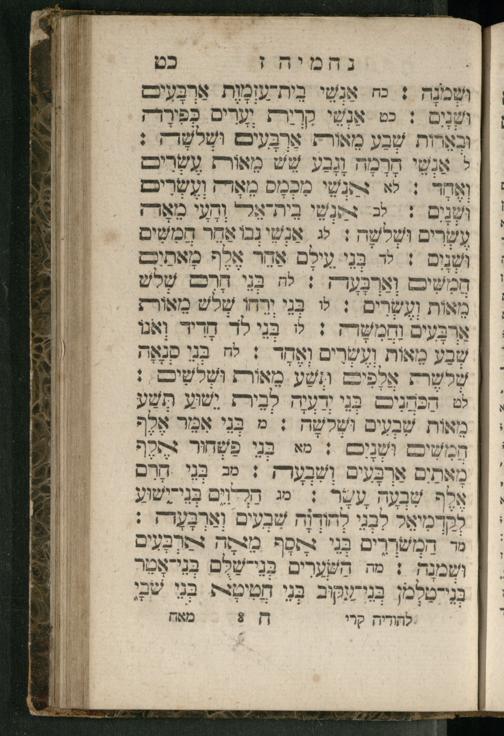 נחמיה ז כט
וּשְׁמֹנָה : כח אַנְשֵׁי בֵית־עַזְמָוֶת אַרְבָּעִים
וּשְׁנָיִם : כט אַנְשֵׁי קִרְיַת יְעָרִים כְּפִירָה
וּבְאֵרוֹת שְׁבַע מֵאוֹת אַרְבָּעִים וּשְׁלֹשָׁה :
ל אַנְשֵׁי הָרָמָה וָגָבַע שֵׁשׁ מֵאוֹת עֶשְׂרִים
וְאֶחָד : לא אַנְשֵׁי מִכְמָס מֵאָה וְעֶשְׂרִים
וּשְׁנָיִם : לב אַנְשֵׁי בֵית־אֵל וְהָעָי מֵאָה
עֶשְׂרִים וּשְׁלֹשָׁה : לג אַנְשֵׁי נְבוֹ אַחֵר חֲמִשִּׁים
וּשְׁנָיִם : לד בְּנֵי עֵילָם אַחֵר אֶלֶף מָאתַיִם
חֲמִשִּׁים וְאַרְבָּעָה : לה בְּנֵי חָרִם שְׁלֹשׁ
מֵאוֹת וְעֶשְׂרִים : לו בְּנֵי יְרֵחוֹ שְׁלֹשׁ מֵאוֹת
אַרְבָּעִים וַחֲמִשָּׁה : לז בְּנֵי לֹד חָדִיד וְאֹנוֹ
שְׁבַע מֵאוֹת וְעֶשְׂרִים וְאֶחָד : לח בְּנֵי סְנָאָה
שְׁלֹשֶׁת אֲלָפִים תְּשַׁע מֵאוֹת וּשְׁלֹשִׁים :
לט הַכֹּהֲנִים בְּנֵי יְדַעְיָה לְבֵית יֵשׁוּעַ תְּשַׁע
מֵאוֹת שִׁבְעִים וּשְׁלֹשָׁה : מ בְּנֵי אִמֵּר אֶלֶף
חֲמִשִּׁים וּשְׁנָיִם : מא בְּנֵי פַשְׁחוּר אֶלֶף
מָאתַיִם אַרְבָּעִים וְשִׁבְעָה : מב בְּנֵי חָרִם
אֶלֶף שִׁבְעָה עָשָׂר : מג הַלְוִיִּם בְּנֵי־יֵשׁוּעַ
לְקַדְמִיאֵל לִבְנֵי לְהוֹדְוָה שִׁבְעִים וְאַרְבָּעָה :
מד הַמְשֹׁרֲרִים בְּנֵי אָסָף מֵאָה אַרְבָּעִים
וּשְׁמֹנָה : מה הַשֹּׁעֲרִים בְּנֵי־שַׁלֻּם בְּנֵי־אָטֵר
בְּנֵי־טַלְמֹן בְּנֵי־עַקּוּב בְּנֵי חֲטִיטָא בְּנֵי שֹׁבָי
להודיה קרי ח 8 מאח